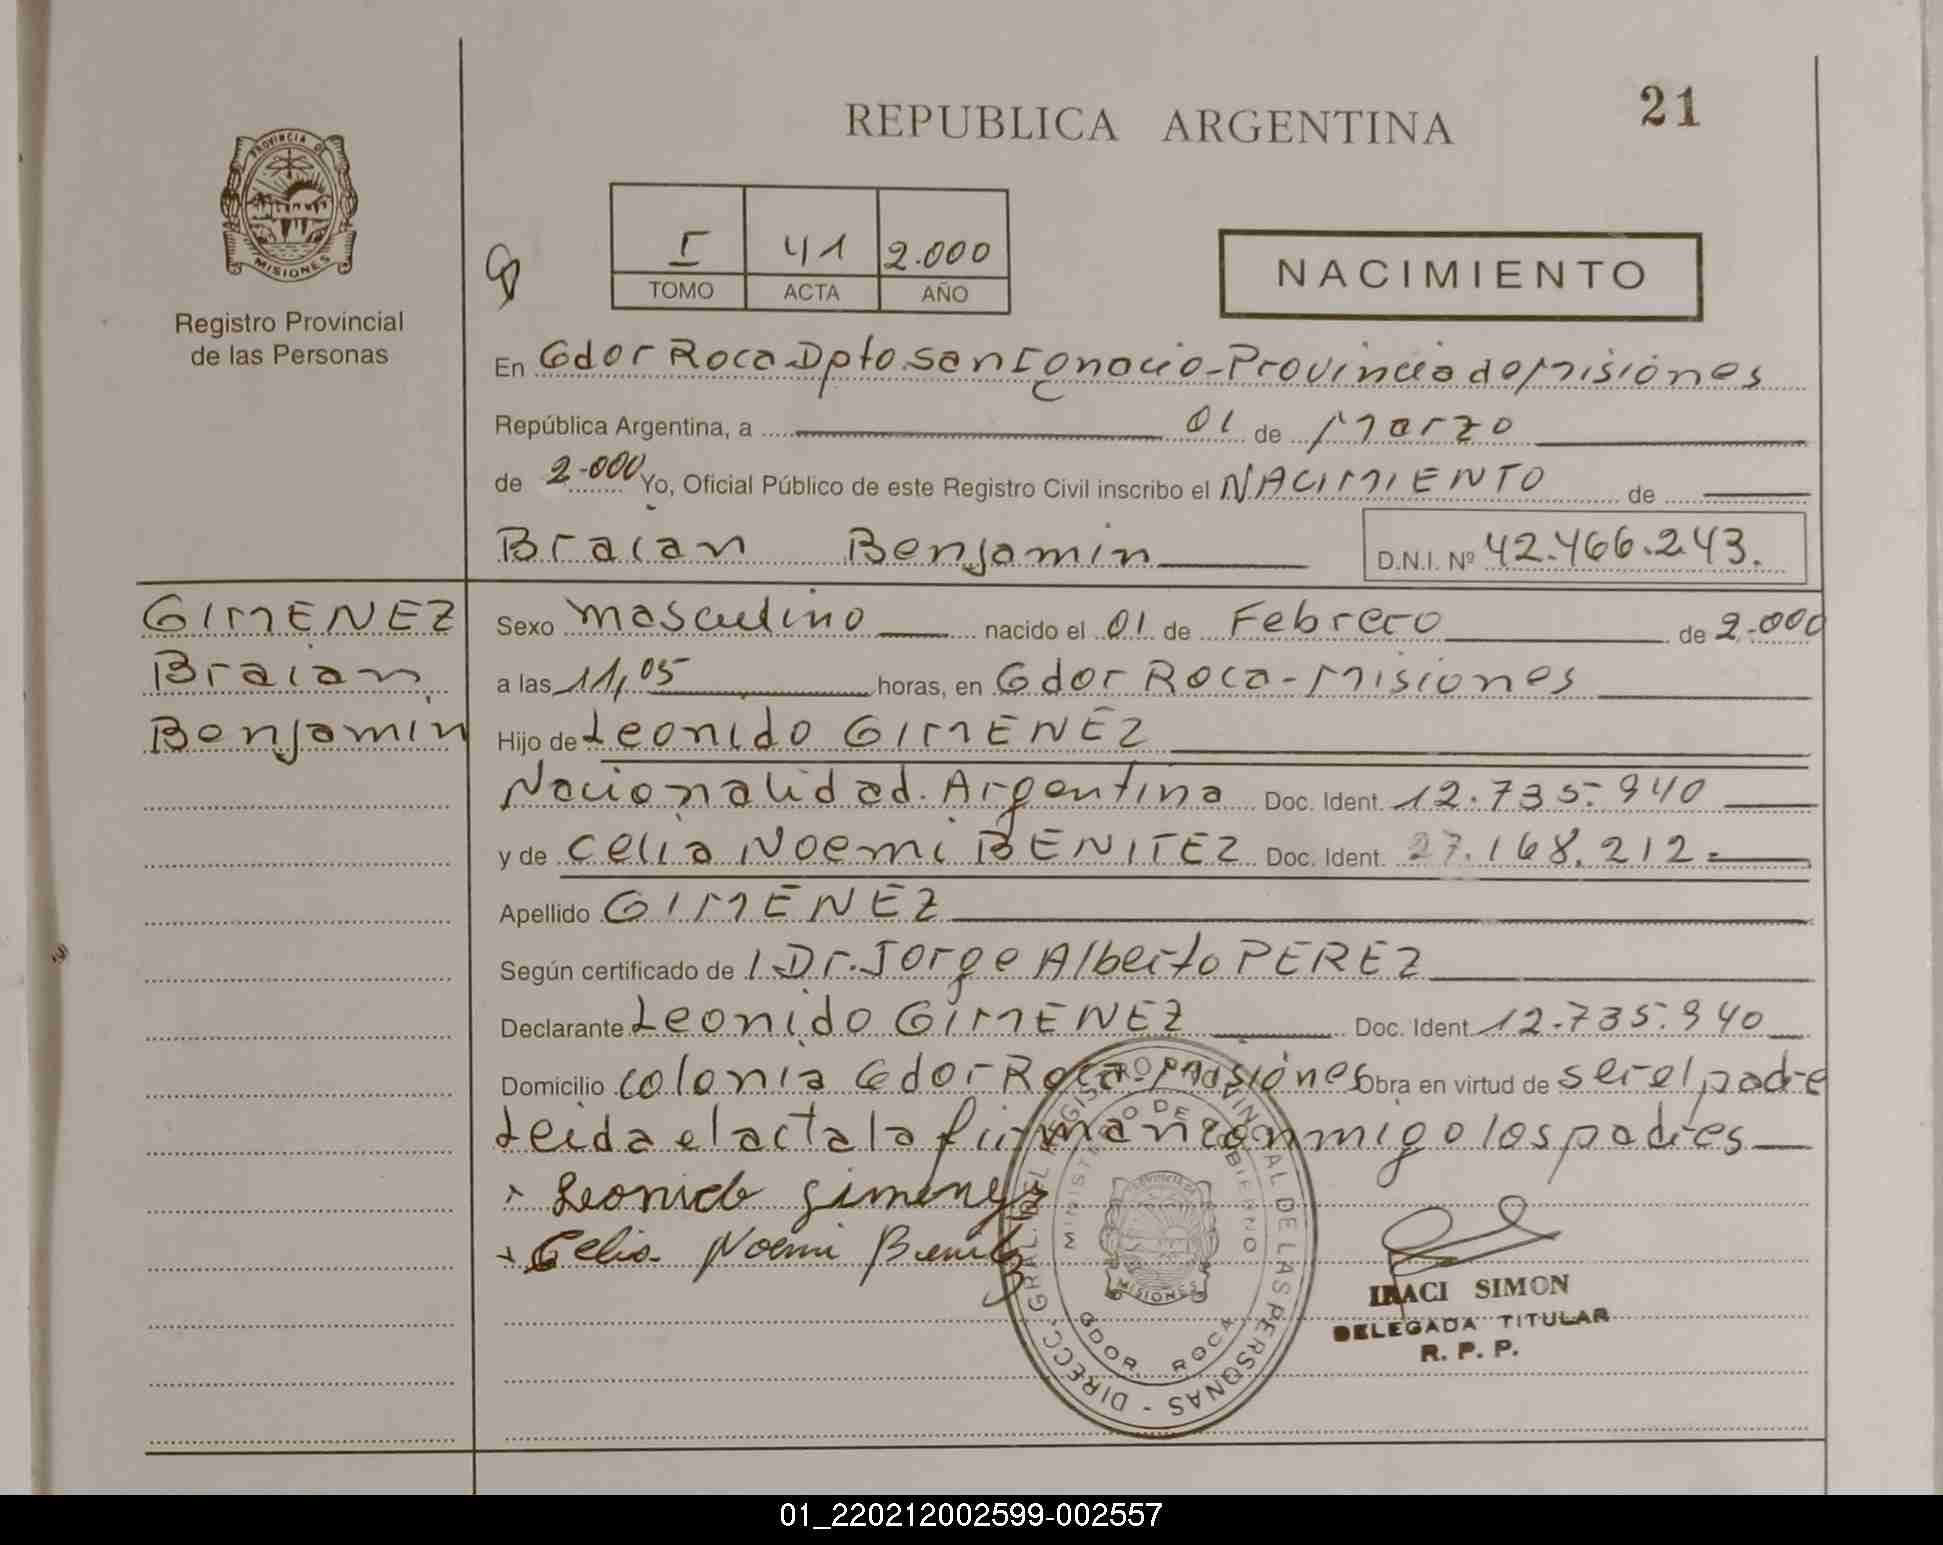 REPUBLICA ARGENTINA
21
PROVINCIA DE
MISIONES
Registro Provincial
de las Personas
I 41 2.000
TOMO ACTA AÑO
NACIMIENTO
En Gdor Roca Dpto San Ignacio - Provincia de Misiones
República Argentina, a 01 de Marzo
de 2.000 Yo, Oficial Público de este Registro Civil inscribo el NACIMIENTO de
Braian Benjamin D.N.I. Nº 42.466.243.
GIMENEZ
Braian
Benjamin
Sexo masculino nacido el 01 de Febrero de 2.000
a las 11,05 horas, en Gdor Roca - Misiones
Hijo de Leonido GIMENEZ
Nacionalidad Argentina Doc. Ident. 12.735.940
y de Celia Noemi BENITEZ Doc. Ident. 27.168.212.-
Apellido GIMENEZ
Según certificado de 1 Dr. Jorge Alberto PEREZ
Declarante Leonido GIMENEZ Doc. Ident 12.735.940
Domicilio colonia Gdor Roca - Misiones Obra en virtud de ser el padre
Leida el acta la firman conmigo los padres
Leonido Gimenez
Celia Noemi Benitez
DIRECC. GRAL. DEL REGISTRO PROVINCIAL DE LAS PERSONAS -
MINISTERIO DE GOBIERNO
MISIONES
GDOR. ROCA
IRACI SIMON
DELEGADA TITULAR
R. P. P.
01_220212002599-002557